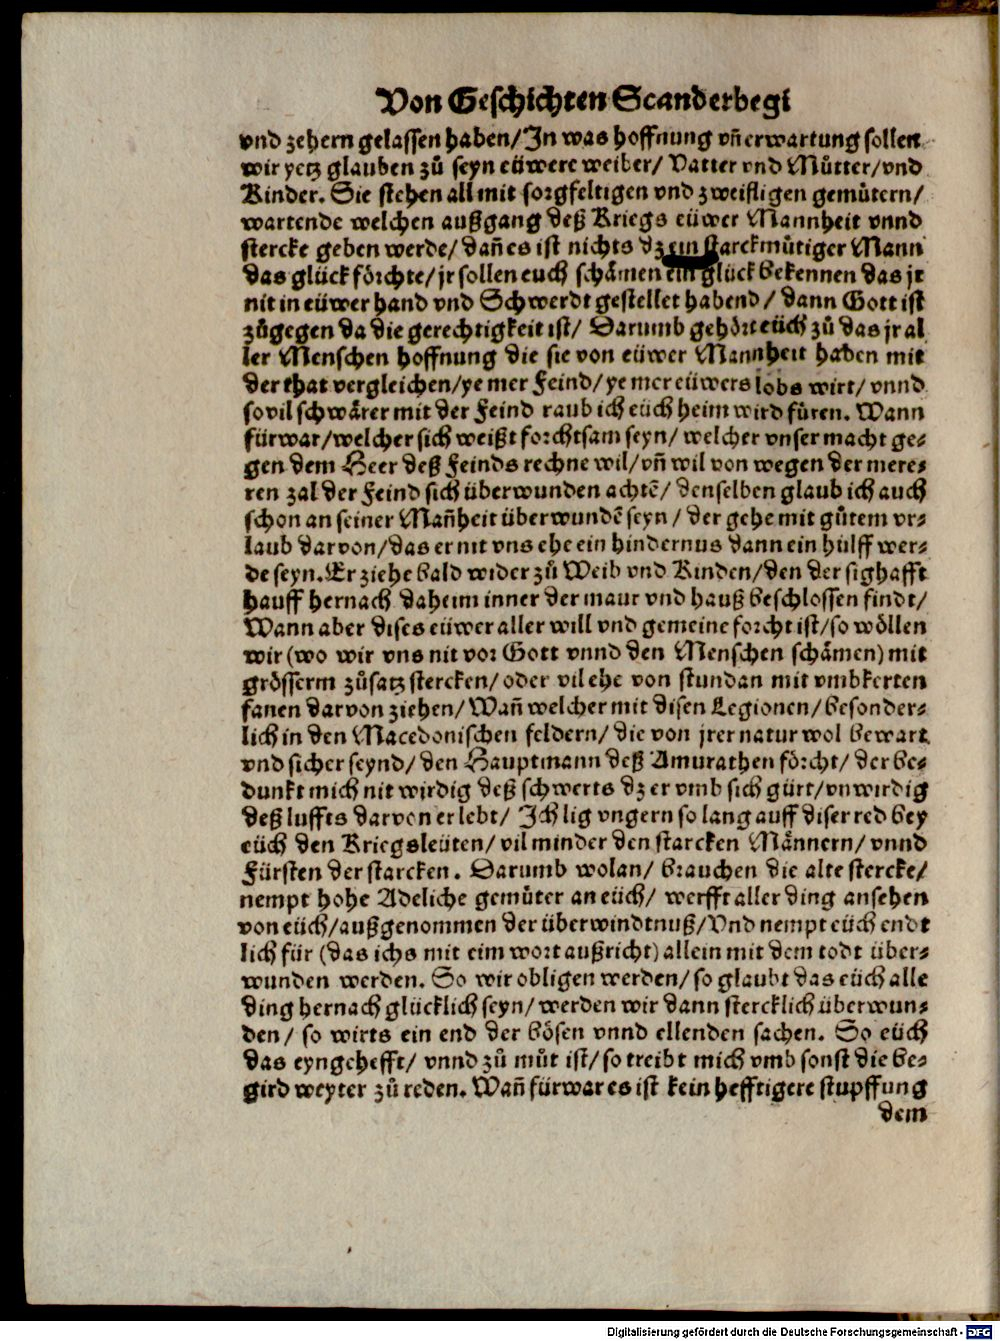 Von Geschichten Scanderbegi
vnd zehern gelassen haben/ In was hoffnung vñ erwartung sollen
wir yetz glauben zů seyn eüwere weiber/ Vatter vnd Můtter/ vnd
Kinder. Sie stehen all mit sorgfeltigen vnd zweifligen gemůtern/
wartende welchen außgang deß Kriegs eüwer Mannheit vnnd
stercke geben werde/ dañ es ist nichts dz ein starckmůtiger Mann
das glück förchte/ jr sollen euch schämen ein glück bekennen das jr
nit in eüwer hand vnd Schwerdt gestellet habend/ dann Gott ist
zůgegen da die gerechtigkeit ist/ Darumb gehört eüch zů das jr al
ler Menschen hoffnung die sie von eüwer Mannheit haben mit
der that vergleichen/ ye mer Feind/ ye mer eüwers lobs wirt/ vnnd
so vil schwärer mit der Feind raub ich eüch heim wird füren. Wann
fürwar/ welcher sich weißt forchtsam seyn/ welcher vnser macht ge-
gen dem Heer deß Feinds rechne wil/ vñ wil von wegen der mere-
ren zal der Feind sich überwunden achtē/ denselben glaub ich auch
schon an seiner Mañheit überwundē seyn/ der gehe mit gůtem vr-
laub darvon/ das er nit vns ehe ein hindernus dann ein hülff wer-
de seyn. Er ziehe bald wider zů Weib vnd Kinden/ den der sighafft
hauff hernach daheim inner der maur vnd hauß beschlossen findt/
Wann aber dises eüwer aller will vnd gemeine forcht ist/ so wöllen
wir (wo wir vns nit vor Gott vnnd den Menschen schämen) mit
grösserm zůsatz stercken/ oder vil ehe von stundan mit vmbkerten
fanen darvon ziehen/ Wañ welcher mit disen Legionen/ besonder-
lich in den Macedonischen feldern/ die von jrer natur wol bewart
vnd sicher seynd/ den Hauptmann deß Amurathen förcht/ der be-
dunkt mich nit wirdig deß schwerts dz er vmb sich gürt/ vnwirdig
deß luffts darvon er lebt/ Ich lig vngern so lang auff diser red bey
eüch den Kriegsleüten/ vil minder den starcken Männern/ vnnd
Fürsten der starcken. Darumb wolan/ brauchen die alte stercke/
nempt hohe Adeliche gemůter an eüch/ werfft aller ding ansehen
von eüch/ außgenommen der überwindtnuß/ Vnd nempt eüch endt
lich für (das ichs mit eim wort außricht) allein mit dem todt über-
wunden werden. So wir obligen werden/ so glaubt das eüch alle
ding hernach glücklich seyn/ werden wir dann stercklich überwun-
den/ so wirts ein end der bösen vnnd ellenden sachen. So eüch
das eyngehefft/ vnnd zů můt ist/ so treibt mich vmb sonst die be-
gird weyter zů reden. Wañ fürwar es ist kein hefftigere stupffung
dem
Digitalisierung gefördert durch die Deutsche Forschungsgemeinschaft - DFG